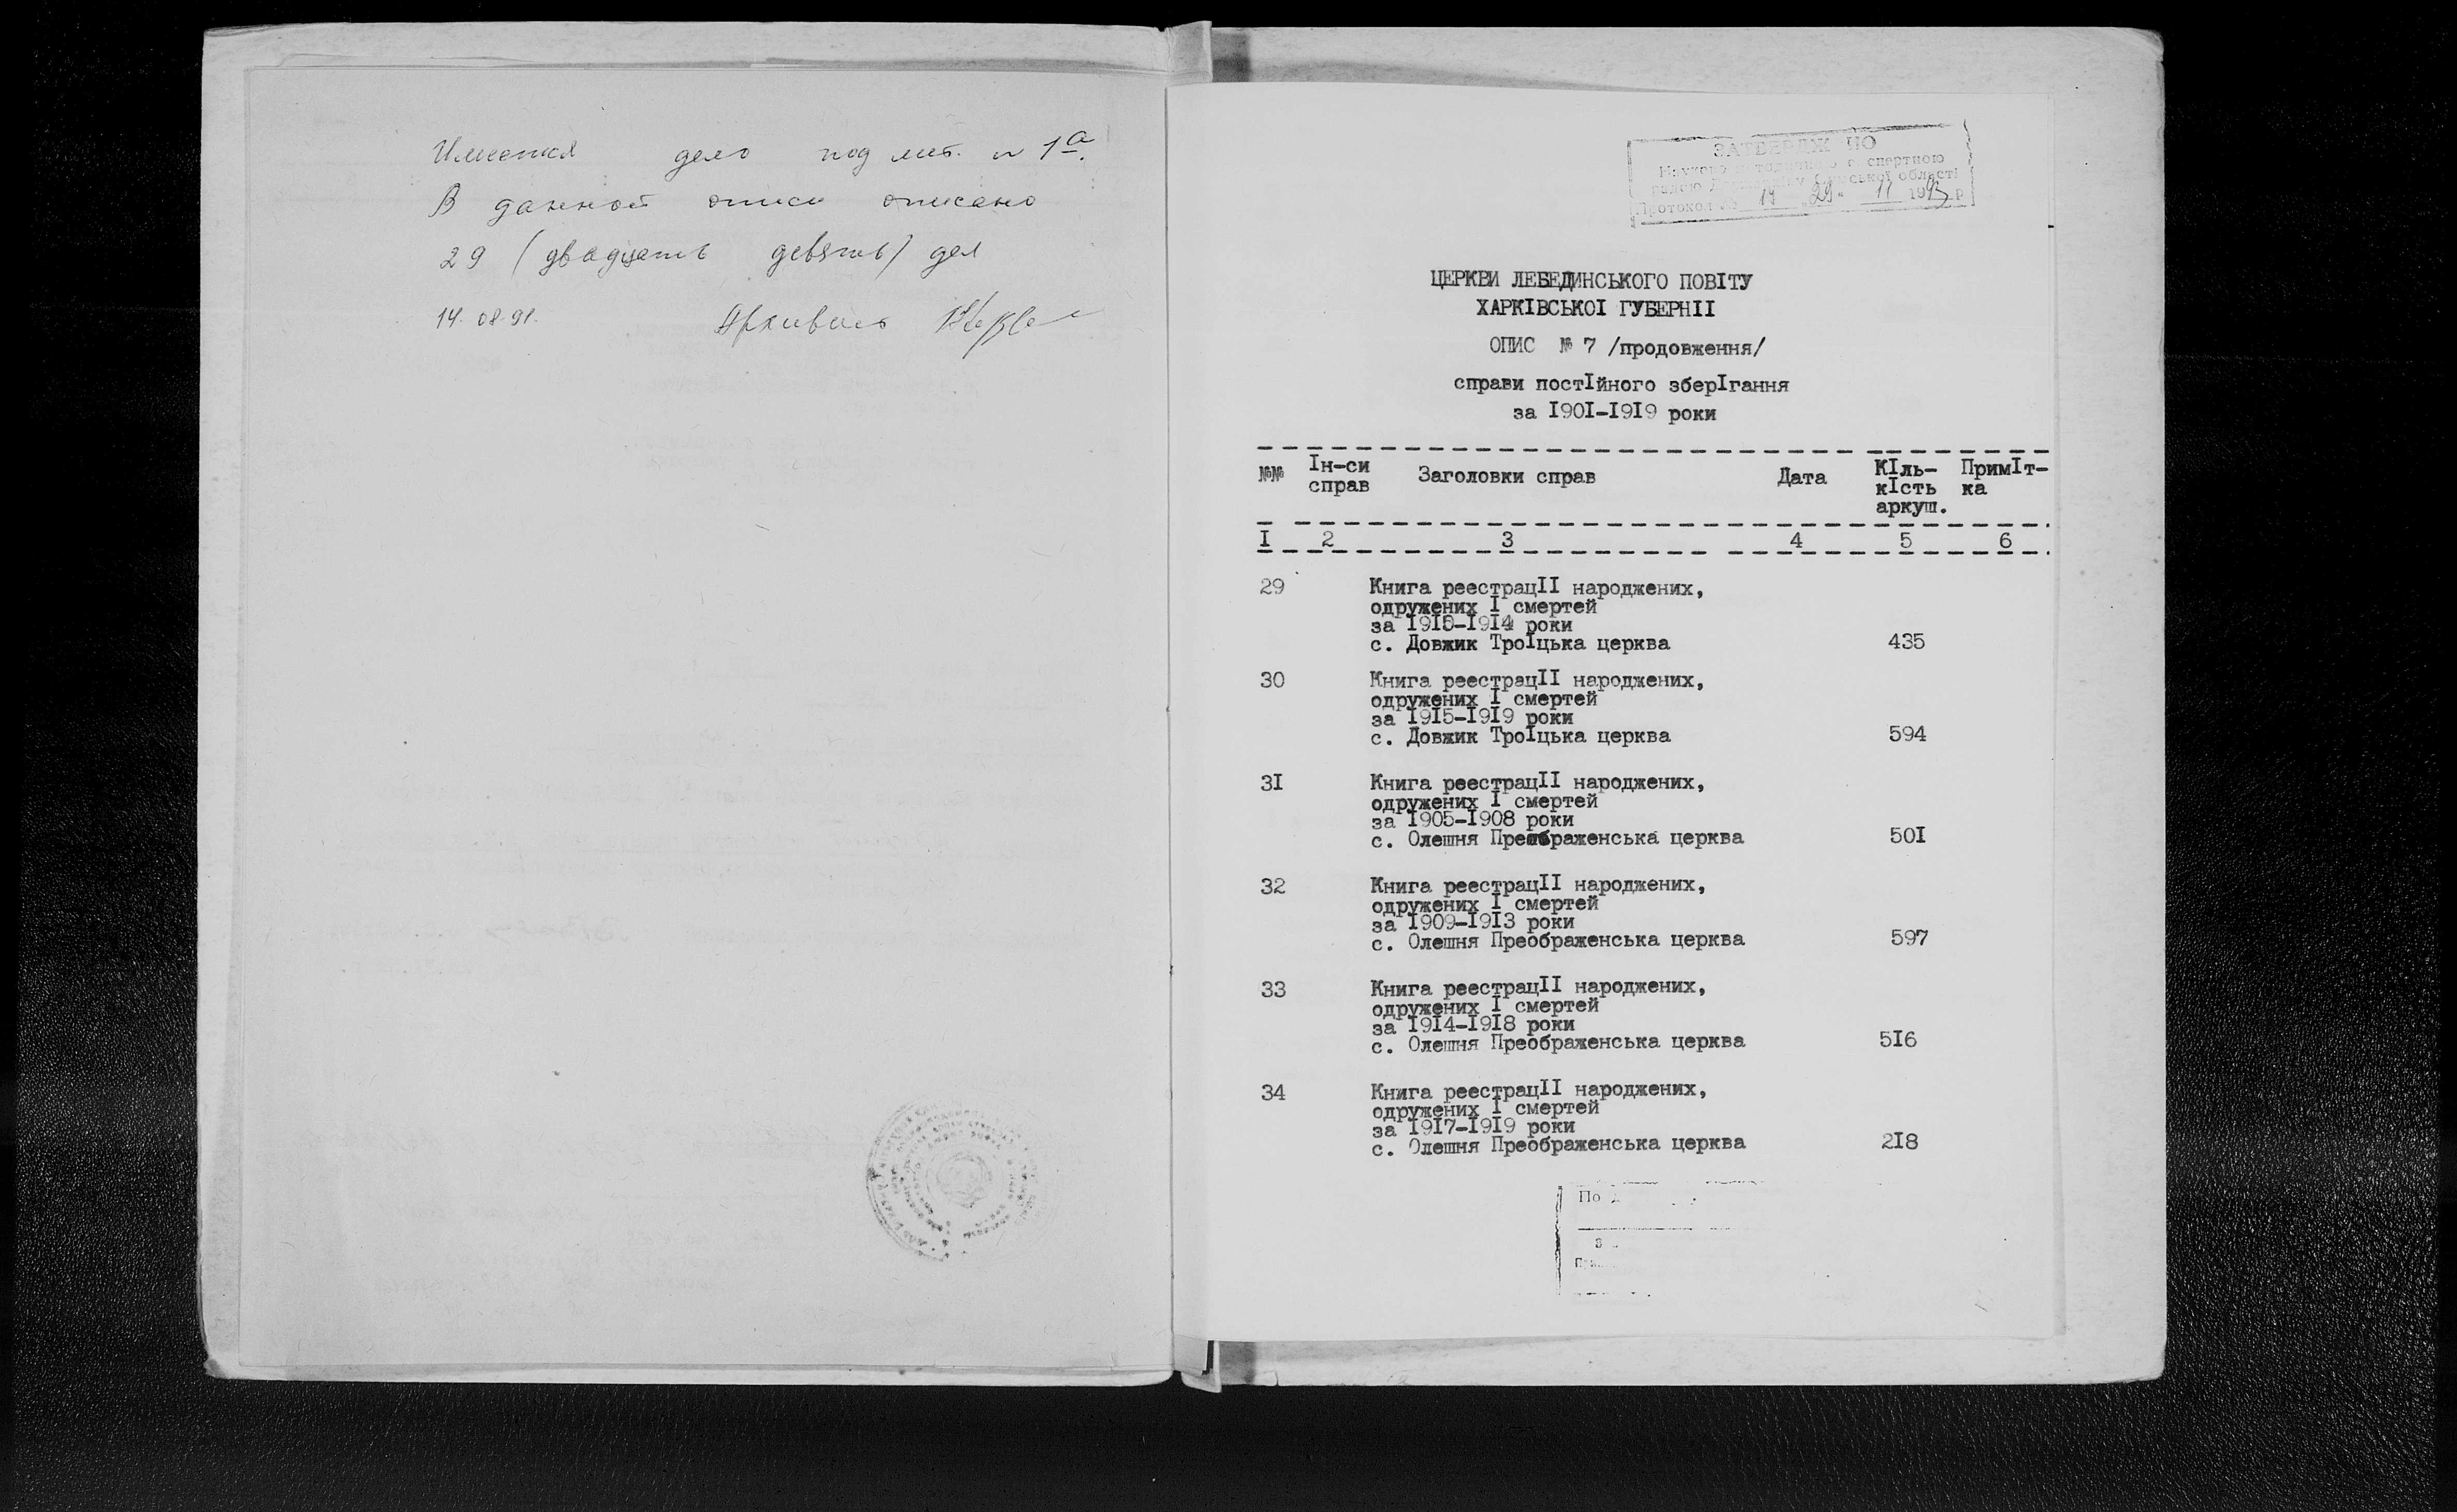 Имеется дело под лит. № 1а.
В данной описи описано
29 (двадцать девять) дел
14.08.91. Архивист
ЗАТВЕРДЖ НО
Протокол № 14 "29" 11 1993 р
ЦЕРКВИ ЛЕБЕДИНСЬКОГО ПОВІТУ
ХАРКІВСЬКОІ ГУБЕРНІІ
ОПИС № 7 /продовження/
справи постІйного зберІгання
за І90І-І9І9 роки
№№ Ін-си справ Заголовки справ Дата КІль-кІсть аркуш. ПримІт-ка
І 2 3 4 5 6
29 Книга реестрацІІ народжених,
одружених І смертей
за І9І0-І9І4 роки
с. Довжик ТроІцька церква 435
30 Книга реестрацІІ народжених,
одружених І смертей
за І9І5-І9І9 роки
с. Довжик ТроІцька церква 594
3І Книга реестрацІІ народжених,
одружених І смертей
за І905-І908 роки
с. Олешня Преображенська церква 50І
32 Книга реестрацІІ народжених,
одружених І смертей
за І909-І9І3 роки
с. Олешня Преображенська церква 597
33 Книга реестрацІІ народжених,
одружених І смертей
за І9І4-І9І8 роки
с. Олешня Преображенська церква 5І6
34 Книга реестрацІІ народжених,
одружених І смертей
за І9І7-І9І9 роки
с. Олешня Преображенська церква 2І8